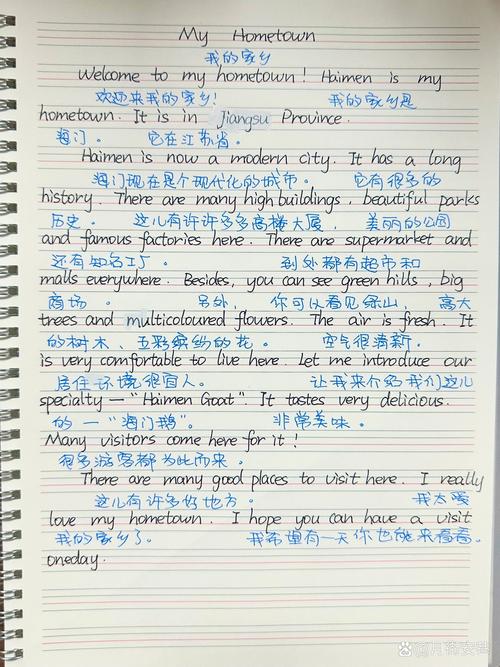 My Hometown
我的家乡
Welcome to my hometown! Haimen is my
欢迎来我的家乡! 我的家乡是
hometown. It is in Jiangsu Province.
海门。 它在江苏省。
Haimen is now a modern city. It has a long
海门现在是个现代化的城市。 它有很多的
history. There are many high buildings, beautiful parks
历史。 这儿有许许多多高楼大厦, 美丽的公园
and famous factories here. There are supermarket and
还有知名工厂。 到处都有超市和
malls everywhere. Besides, you can see green hills, big
商场。 另外, 你可以看见绿山, 高大
trees and multicoloured flowers. The air is fresh. It
的树木、五彩缤纷的花。 空气很清新,
is very comfortable to live here. Let me introduce our
居住环境很宜人。 让我来介绍我们这儿
specialty — "Haimen Goat". It tastes very delicious.
的 — "海门鹅"。 非常美味。
Many visitors come here for it!
很多游客都为此而来。
There are many good places to visit here. I really
这儿有许多好地方。 我太爱
love my hometown. I hope you can have a visit
我的家乡了。 我希望有一天你也能来看看。
oneday.